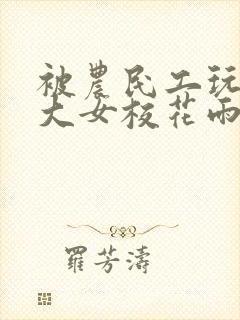 被農民工玩
大女校花雨
羅芳濤